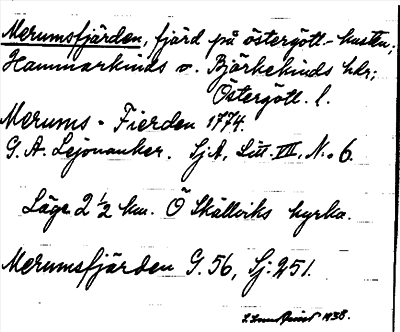 Merumsfjärden, fjärd på östergötl.-kusten;
Hammarkinds o. Björkekinds hdr;
Östergötl. l.
Merums-Fierden 1774.
G. A. Lejonanker. SjA, Litt. VII, N:o 6.
Läge 2 1/2 km. Ö Skällviks kyrka.
Merumsfjärden G. 56, Sj. 251.
1938.